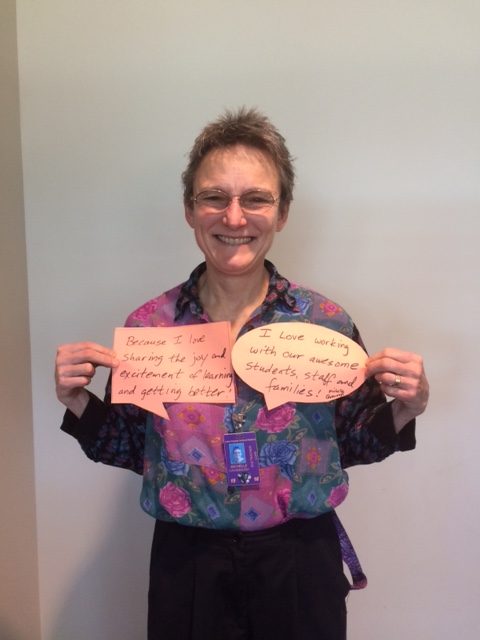 Because I love
sharing the joy and
excitement of learning
and getting better!
I Love working
with our awesome
students, staff and
families!